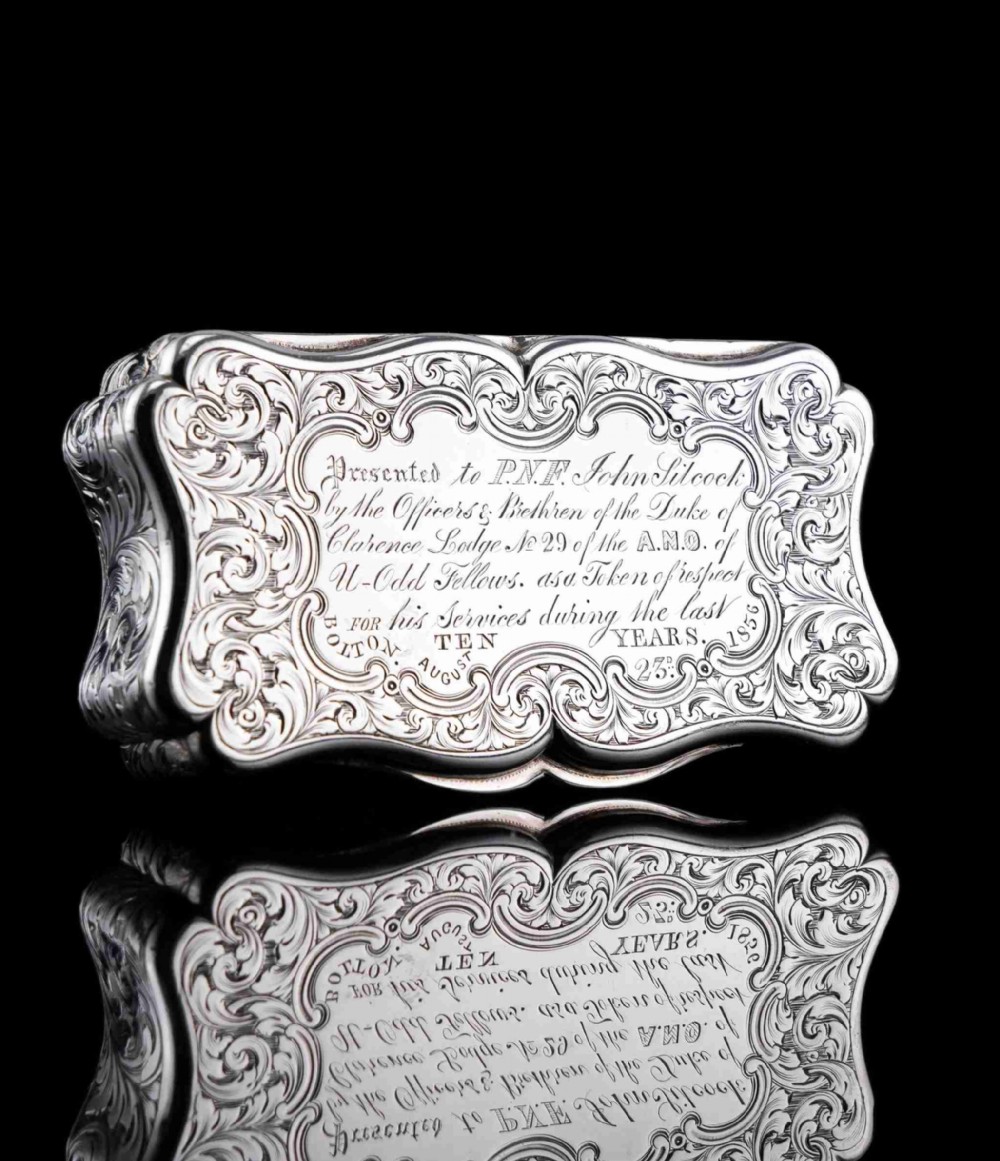 Presented to P.N.F. John Silcock
by the Officers & Brethren of the Duke of
Clarence Lodge No 29 of the A.N.O. of
U-Odd Fellows. as a Token of respect
FOR his Services during the last
TEN YEARS.
BOLTON. AUGUST 23D. 1856